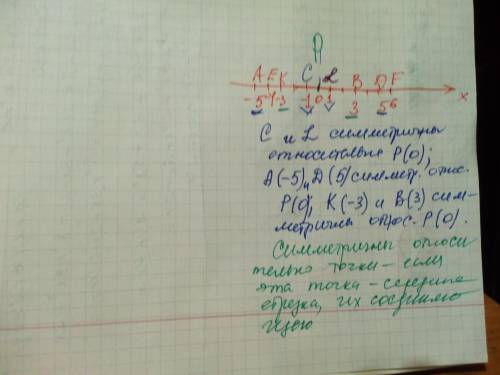 P
A E K C L B D F
-5 -4 -3 -1 0 1 3 5 6 x
C и L симметричны
относительно P(0);
A(-5) и D(5) симметр. относ.
P(0), K(-3) и B(3) сим-
метричны относ. P(0).
Симметричны относи
тельно точки - если
эта точка - середина
отрезка, их соединяю
щего